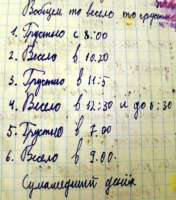 Вобщем то весело то грустно
1. Грустно с 8:00
2. Весело в 10.20
3. Грустно в 11:5
4. Весело в 12:30 и до 6:30
5. Грустно в 7.00
6. Весело в 9.00.
Сумашедший